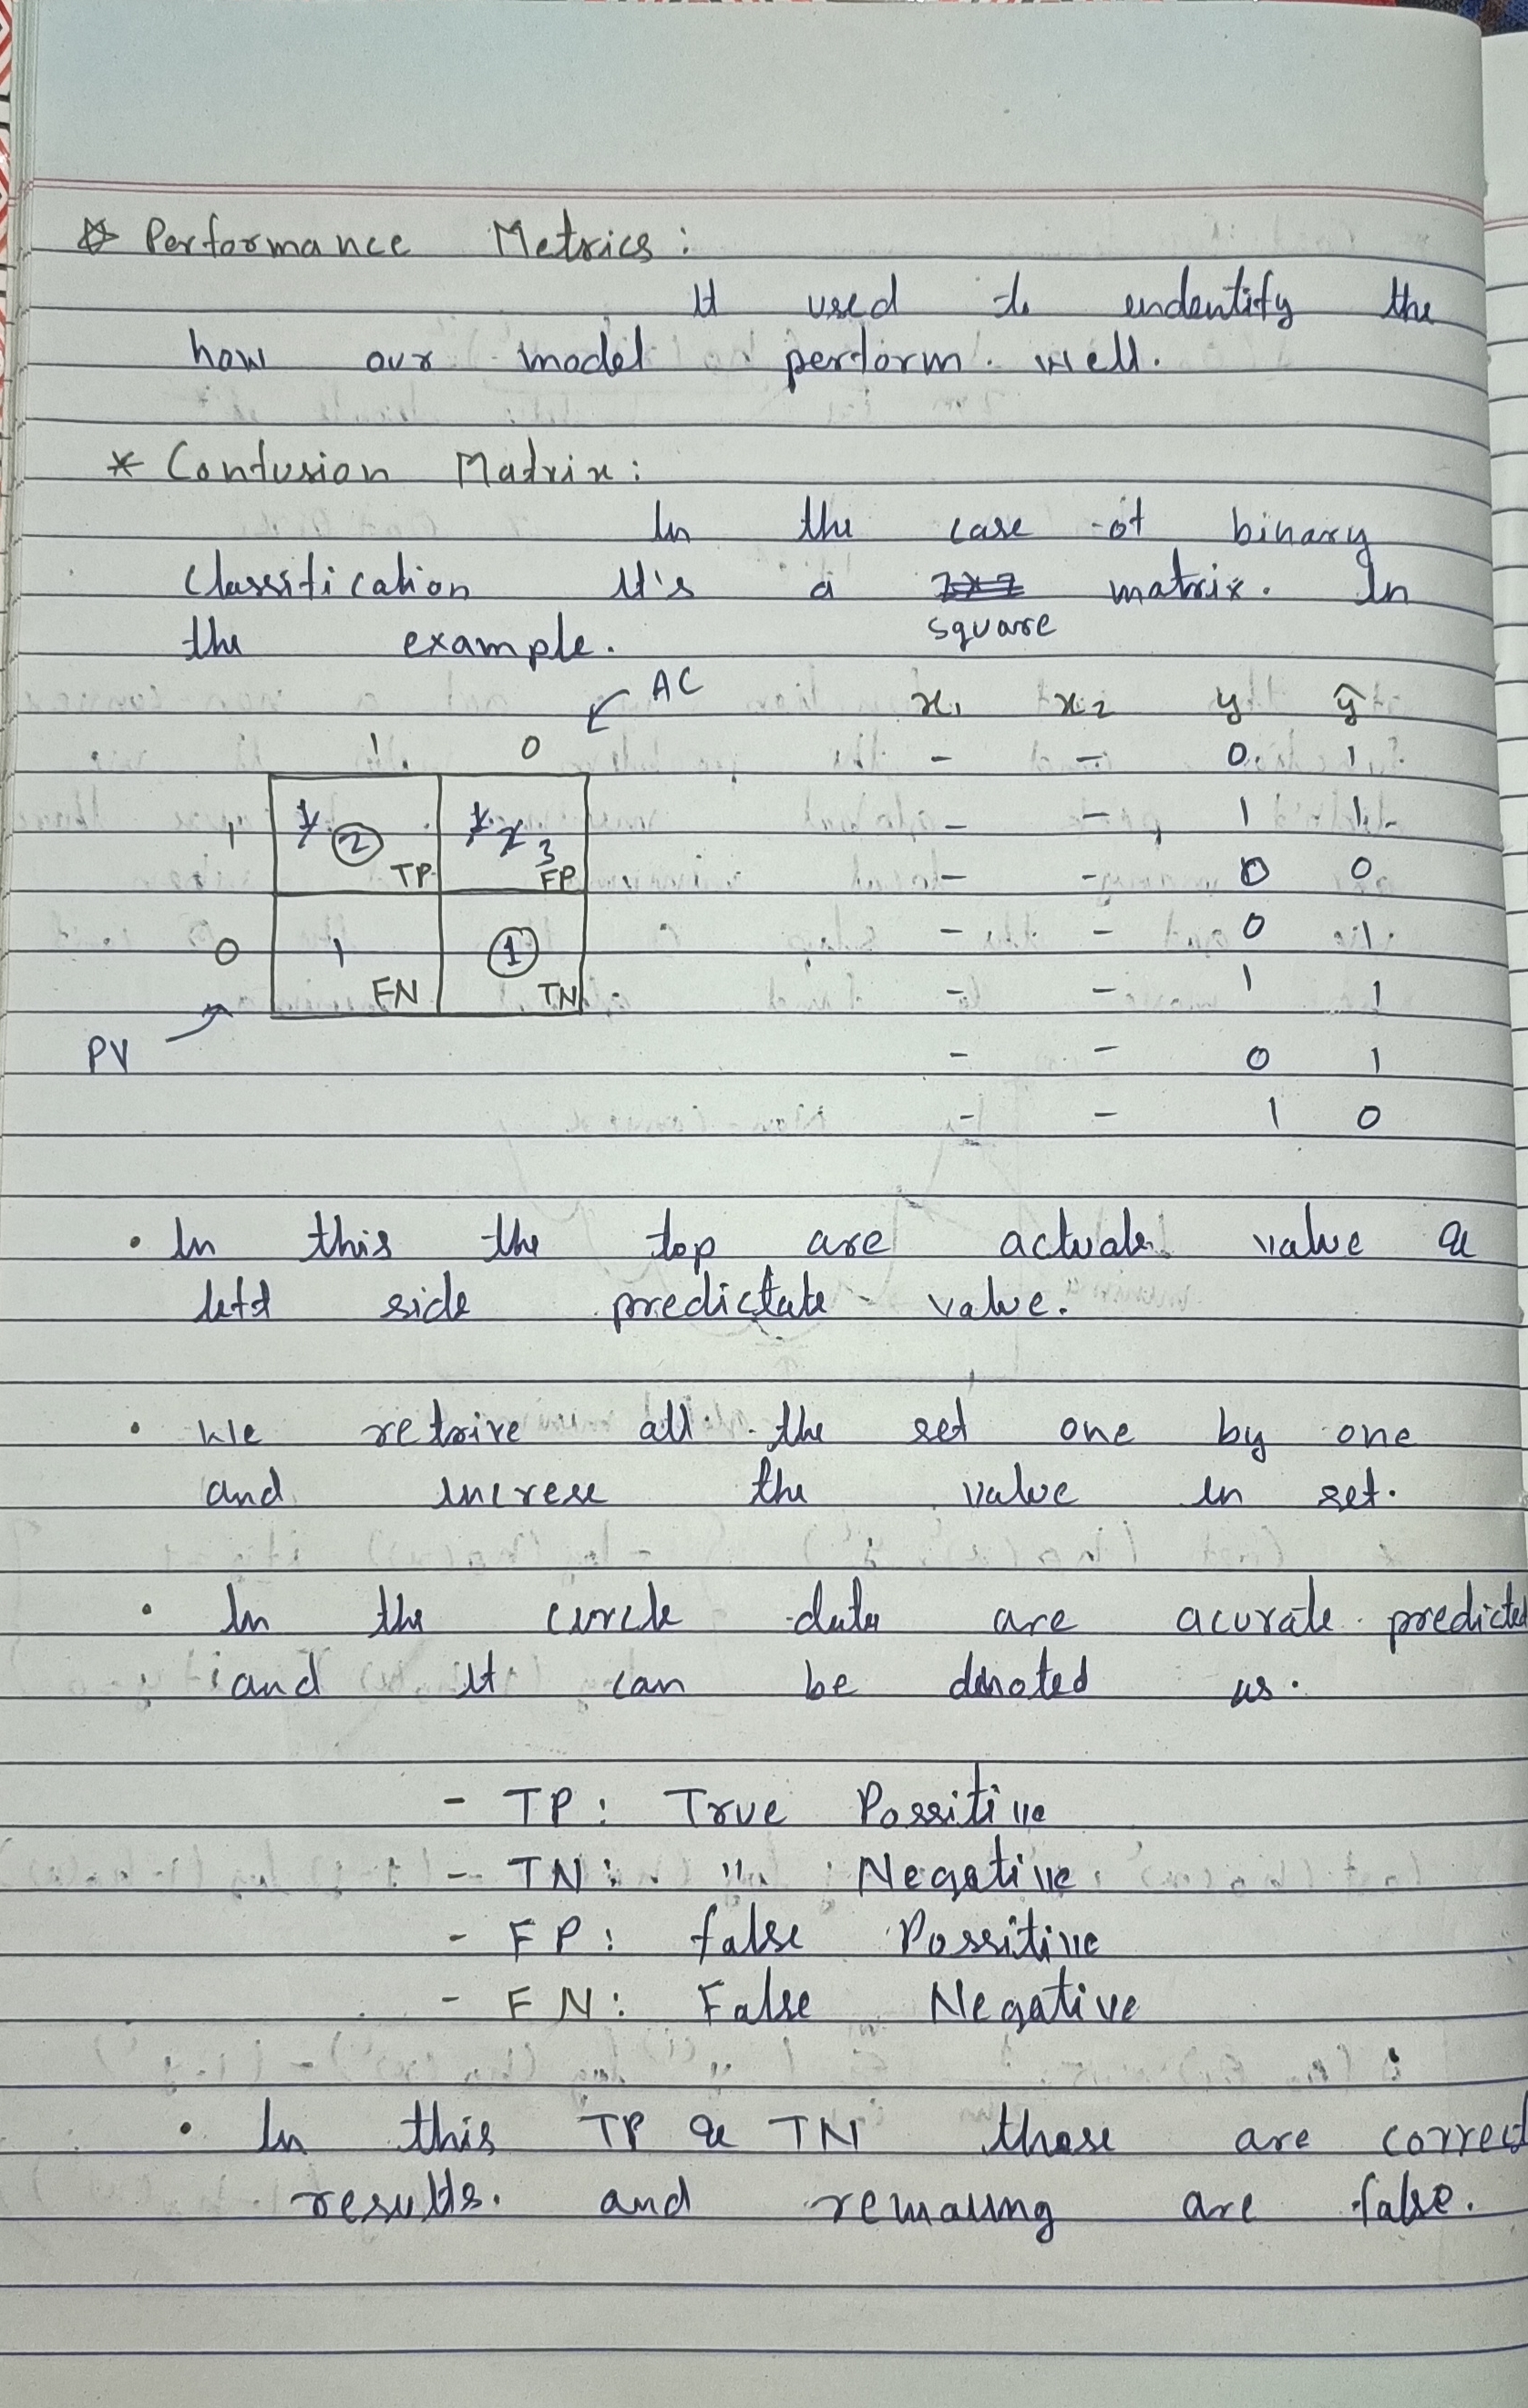 ☆ Performance Metrics :
It used to endentify the
how our model perform well.
* Confusion Matrix :
In the case of binary
Classification It's a matrix. In
square
the example.
AC x₁ x₂ y ŷ
1 0 - - 0 1
1 2 TP 3 FP - - 1 1
- - 0 0
0 1 FN 1 TN - - 0 1
- - 1 1
PV - - 0 1
- - 1 0
• In this the top are actuale value &
left side predictate value.
• We retrive all the set one by one
and increse the value in set.
• In the circle data are acurate predicted
and it can be denoted as.
- TP : True Possitive
- TN : " Negative
- FP : false Possitive
- FN : False Negative
• In this TP & TN those are correct
results. and remaing are false.